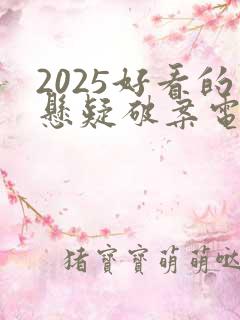 2025好看的
懸疑破案電
猪寶寶萌萌哒